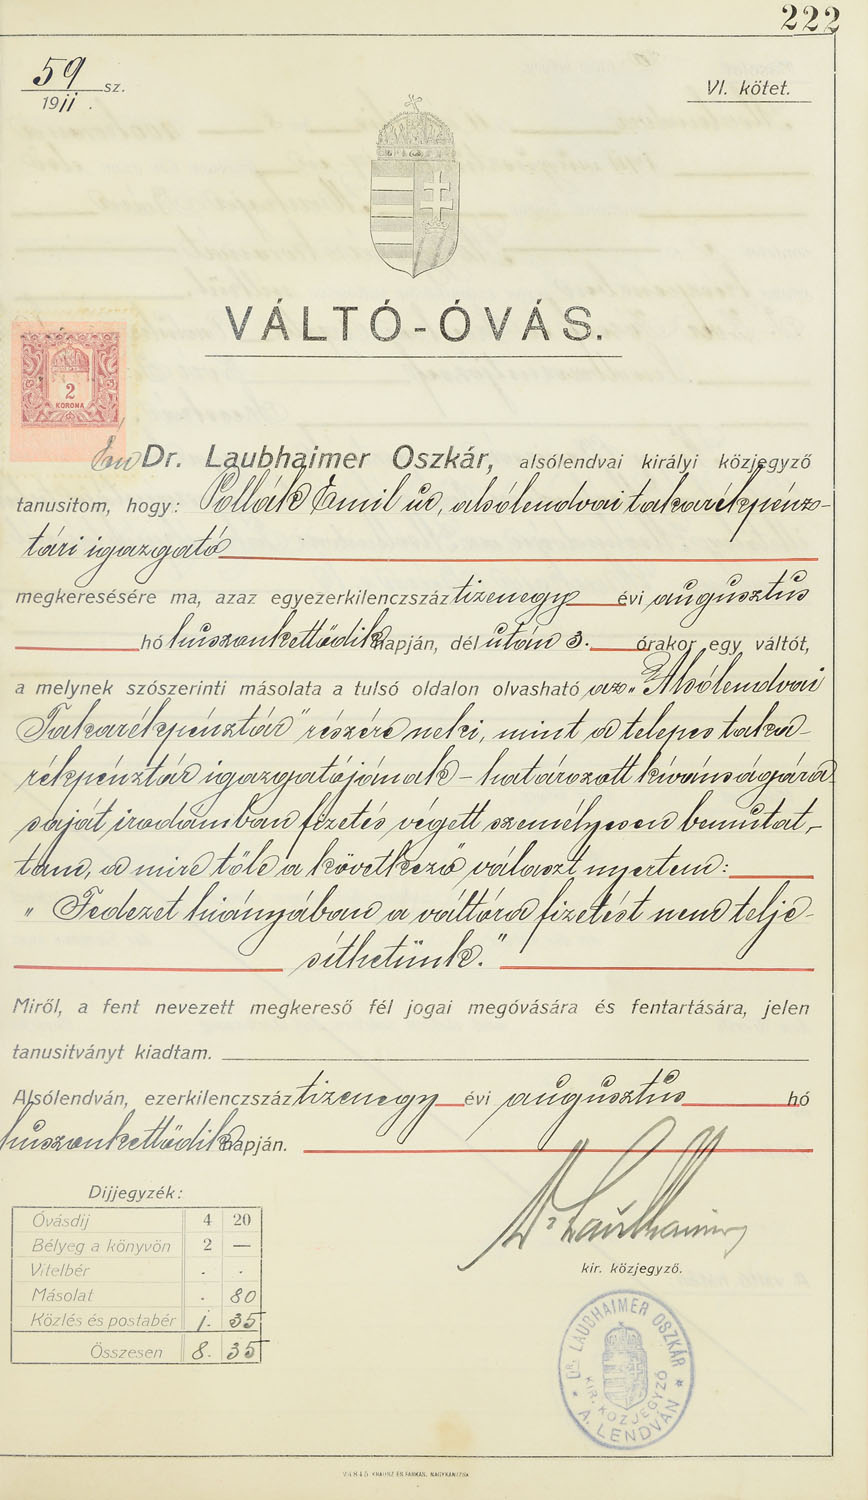 222
59 sz.
1911.
VI. kötet.
VÁLTÓ-ÓVÁS.
2
KORONA
Én Dr. Laubhaimer Oszkár, alsólendvai királyi közjegyző
tanusitom, hogy: Pollák Emil úr, alsólendvai takarékpénz-
tári igazgató
megkeresésére ma, azaz egyezerkilenczszáz tizenegy évi augusztus
hó huszonkettődik napján, dél után 3. órakor egy váltót,
a melynek szószerinti másolata a tulsó oldalon olvasható az „Alsólendvai
Takarékpénztár" részére neki, mint a telepes taka-
rékpénztár igazgatójának – határozott kívánságára
saját irodámban fizetés végett személyesen bemutat-
tam, a mire tőle a következő választ nyertem:
„Fedezet hiányában a váltóra fizetést nem telje-
síthetünk."
Miről, a fent nevezett megkereső fél jogai megóvására és fentartására, jelen
tanusitványt kiadtam.
Alsólendván, ezerkilenczszáz tizenegy évi augusztus hó
huszonkettődik napján.
Dr Laubhaimer
kir. közjegyző.
Dijjegyzék:
Óvásdij 4 20
Bélyeg a könyvön 2 —
Vitelbér . .
Másolat . 80
Közlés és postabér 1. 35
Összesen 8. 35
DR. LAUBHAIMER OSZKÁR
KIR. KÖZJEGYZŐ
A. LENDVÁN
KRAUSZ ÉS FARKAS, NAGYKANIZSA